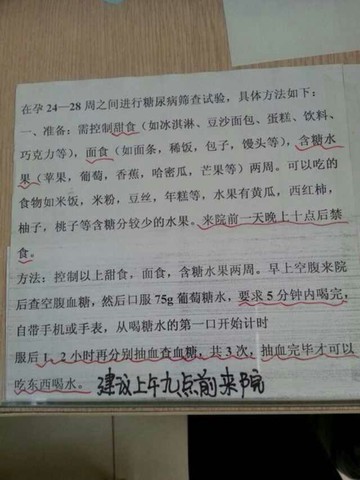 在孕24—28周之间进行糖尿病筛查试验，具体方法如下：
一、准备：需控制甜食（如冰淇淋、豆沙面包、蛋糕、饮料、
巧克力等），面食（如面条，稀饭，包子，馒头等），含糖水
果（苹果，葡萄，香蕉，哈密瓜，芒果等）两周。可以吃的
食物如米饭，米粉，豆丝，年糕等，水果有黄瓜，西红柿，
柚子，桃子等含糖分较少的水果。来院前一天晚上十点后禁
食。
方法：控制以上甜食，面食，含糖水果两周。早上空腹来院
后查空腹血糖，然后口服75g葡萄糖水，要求5分钟内喝完，
自带手机或手表，从喝糖水的第一口开始计时
服后1、2小时再分别抽血查血糖，共3次，抽血完毕才可以
吃东西喝水。建议上午九点前来院